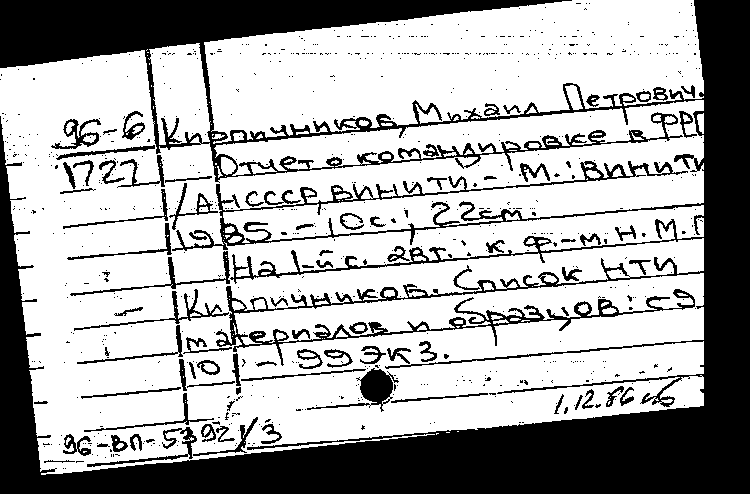 96-6 Кирпичников, Михаил Петрович.
1727 Отчет о командировке в ФРГ
/АНСССР, ВИНИТИ. - М.: ВИНИТИ
1985. - 10 с.; 22см.
На 1-й с. авт.: к. ф.-м. н. М. П
Кирпичников. Список НТИ
материалов и образцов: с 9
10 - 99 экз.
1.12.86
96-ВП-5392/3